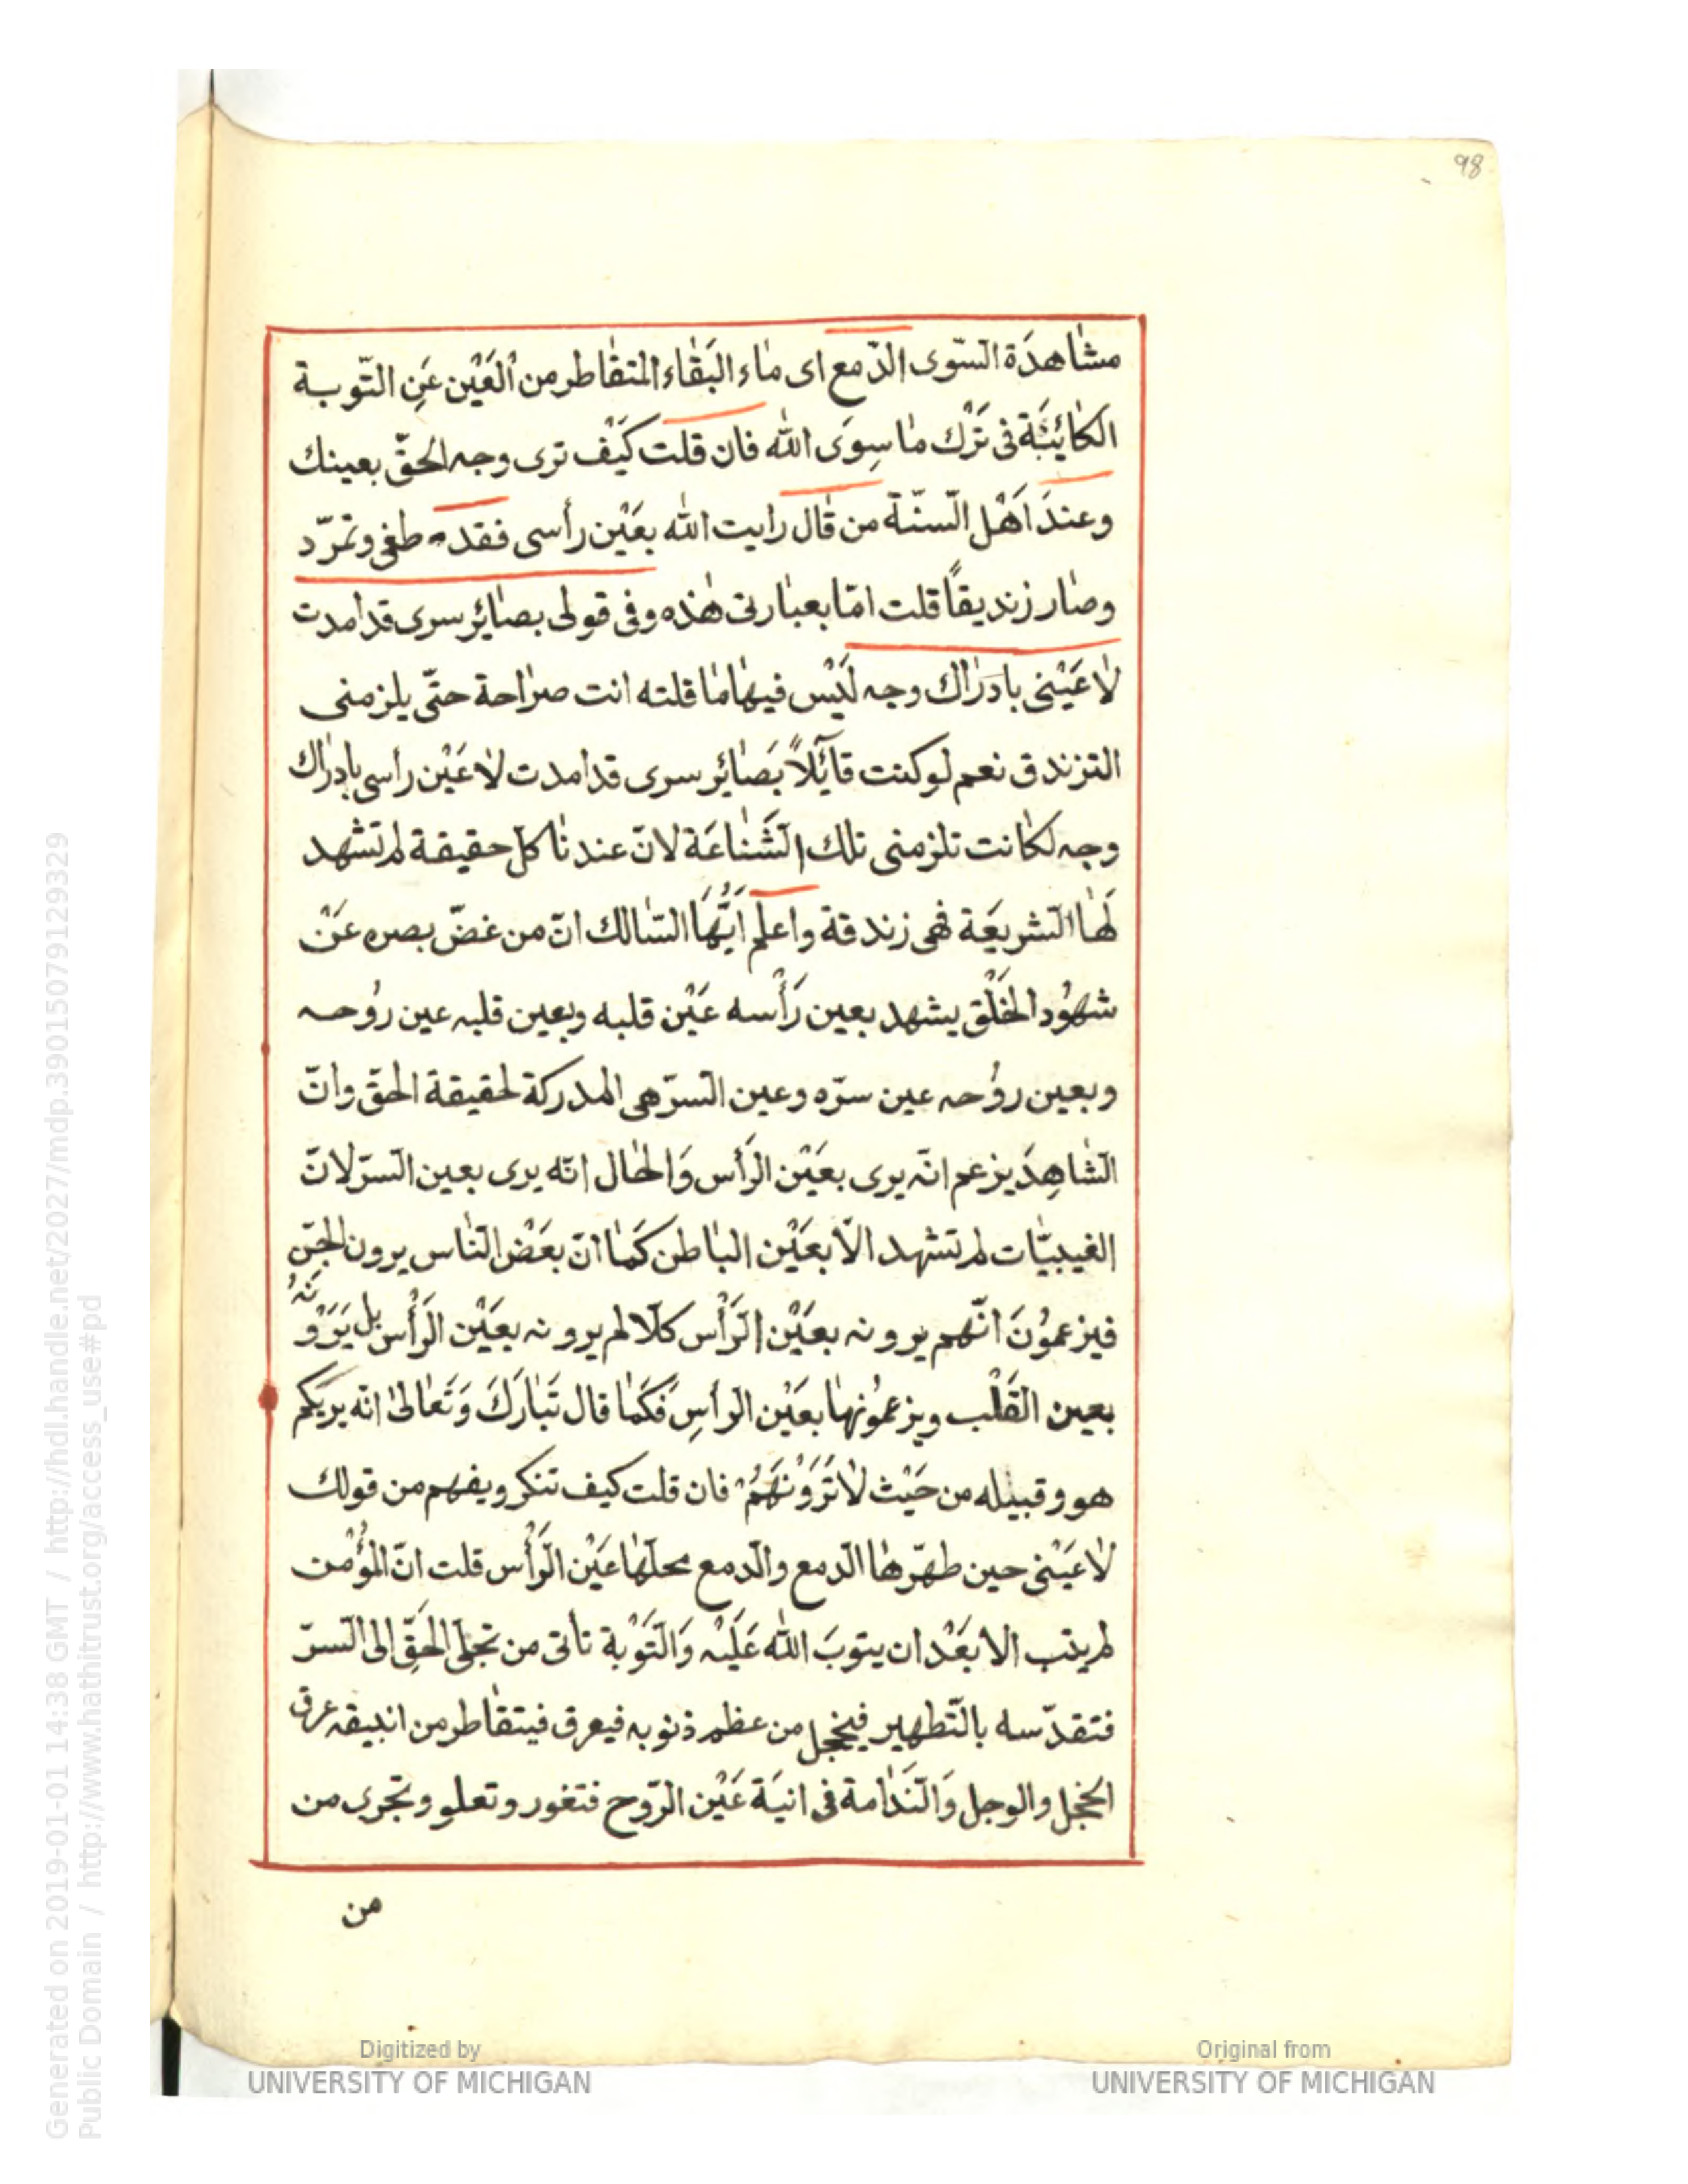 98
مشاهدة السّوى الدّمع اى ماء البَقاء المتقاطر من العَيْن عَنِ التّوبة
الكائِنَة فى تَرْك ما سِوَى الله فان قلت كَيْف ترى وجه الحقّ بعينك
وعندَ اَهْل السّنّة من قال رايت الله بعَيْن رأسى فقد طغى وتمرّد
وصار زنديقًا قلت امّا بعبارتى هٰذه وفى قولى بصائر سرى قد امدت
لاعَيْنى بادَراك وجه لَيْس فيها ما قلته انت صراحة حتّى يلزمنى
التزندق نعم لو كنت قائِلاً بَصائر سرى قد امدت لاعَيْن راسى بادراك
وجه لكانت تلزمنى تلك الشَّناعَة لانّ عندنا كلّ حقيقة لم تشهد
لَها الشريعَة فهى زندقة واعلم اَيُّهَا السّالك انّ من غضّ بصره عَنْ
شهُود الخَلْق يشهد بعين رَأْسه عَيْن قلبه وبعين قلبه عين رُوحه
وبعين رُوحه عين سرّه وعين السرّ هى المدركة لحقيقة الحقّ وانّ
الشاهِدَ يزعم انّه يرى بعَيْن الرَأس وَالحال انّه يرى بعين السرّ لانّ
الغيبيّات لم تشهد الّا بعَيْن الباطن كَما انّ بعَضْ النّاس يرون الجنّ
فيزعمُونَ انّهم يرونه بعَيْن الرَّأس كلّا لم يرونه بعَيْن الرَأس بل يَرَوْنَهُ
بعين القَلْب ويزعمُونها بعَيْن الرأسِ فَكَما قال تَبارَكَ وَتَعالىٰ انّه يريٰكم
هو وقبيله من حَيْث لا تَرَوْنَهُمْ فان قلت كيف تنكر ويفهم من قولك
لاعَيْنى حين طهّرها الدمع والدمع محلّها عَيْن الرَأْس قلت انّ المؤمن
لم يتب الا بعَدْ ان يتوبَ الله عَلَيْه وَالتَوْبة تأتى من تجلّى الحَقِّ الى السرّ
فتقدّسه بالتّطهير فيخجل من عظم ذنوبه فيعرق فيتقاطر من انبيقه عرق
الخجل والوجل وَالنَدامة فى انيَة عَيْن الرّوح فتغور وتعلو وتجرى من
من
Generated on 2019-01-01 14:38 GMT / http://hdl.handle.net/2027/mdp.39015079129329
Public Domain / http://www.hathitrust.org/access_use#pd
Digitized by
UNIVERSITY OF MICHIGAN
Original from
UNIVERSITY OF MICHIGAN